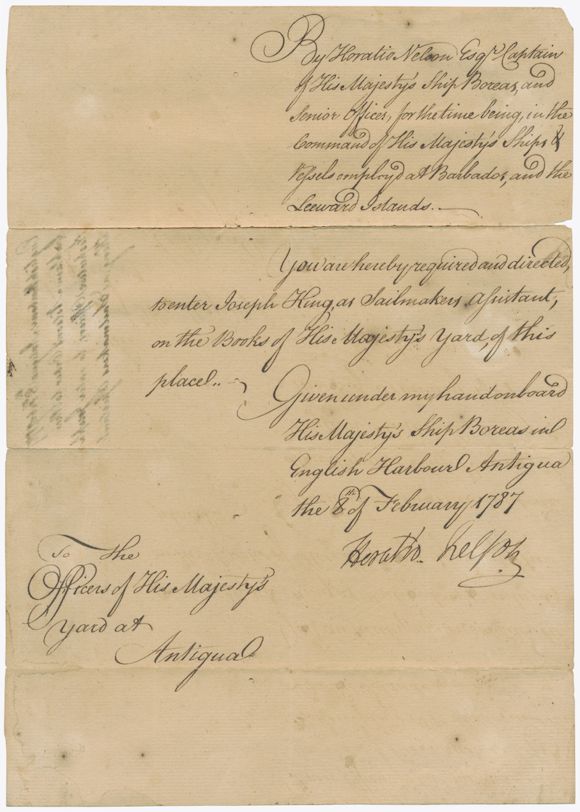 By Horatio Nelson Esqr. Captain
of His Majesty's Ship Boreas, and
Senior Officer, for the time being, in the
Command of His Majesty's Ships &
Vessels employ'd at Barbados, and the
Leeward Islands.
You are hereby required and directed,
to enter Joseph King, as Sailmakers assistant,
on the Books of His Majesty's Yard, of this
place.
Given under my hand onboard
His Majesty's Ship Boreas in
English Harbour Antigua
the 8th of February 1787
Horatio Nelson
To the
Officers of His Majesty's
Yard at
Antigua